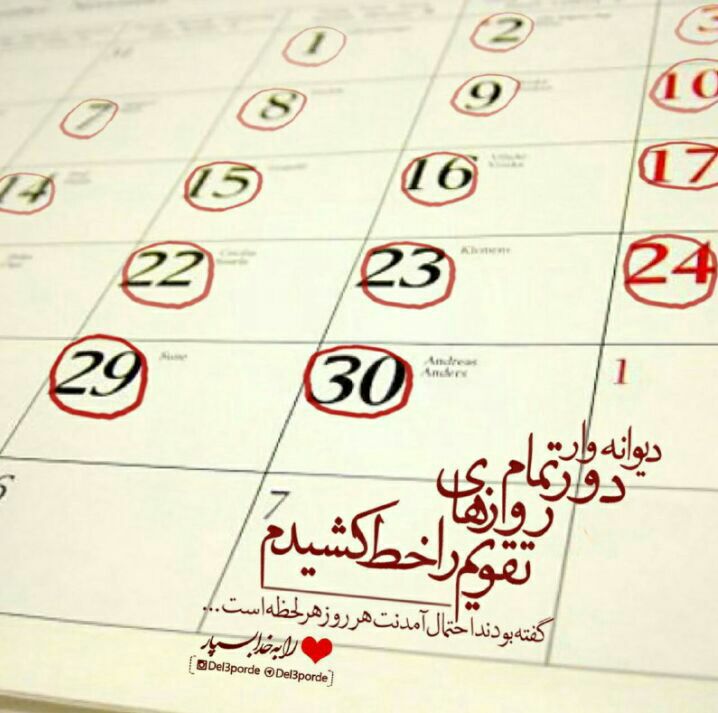 1 2 3
7 8 9 10
14 15 16 17
22 23 Klemens 24
29 Sune 30 Andreas 1
Anders
6 7
دیوانه وار
دور تمام
روزهای
تقویم را خط کشیدم
گفته بودند احتمال آمدنت هر روز هر لحظه است...
را به خدا بسپار
Del3porde Del3porde